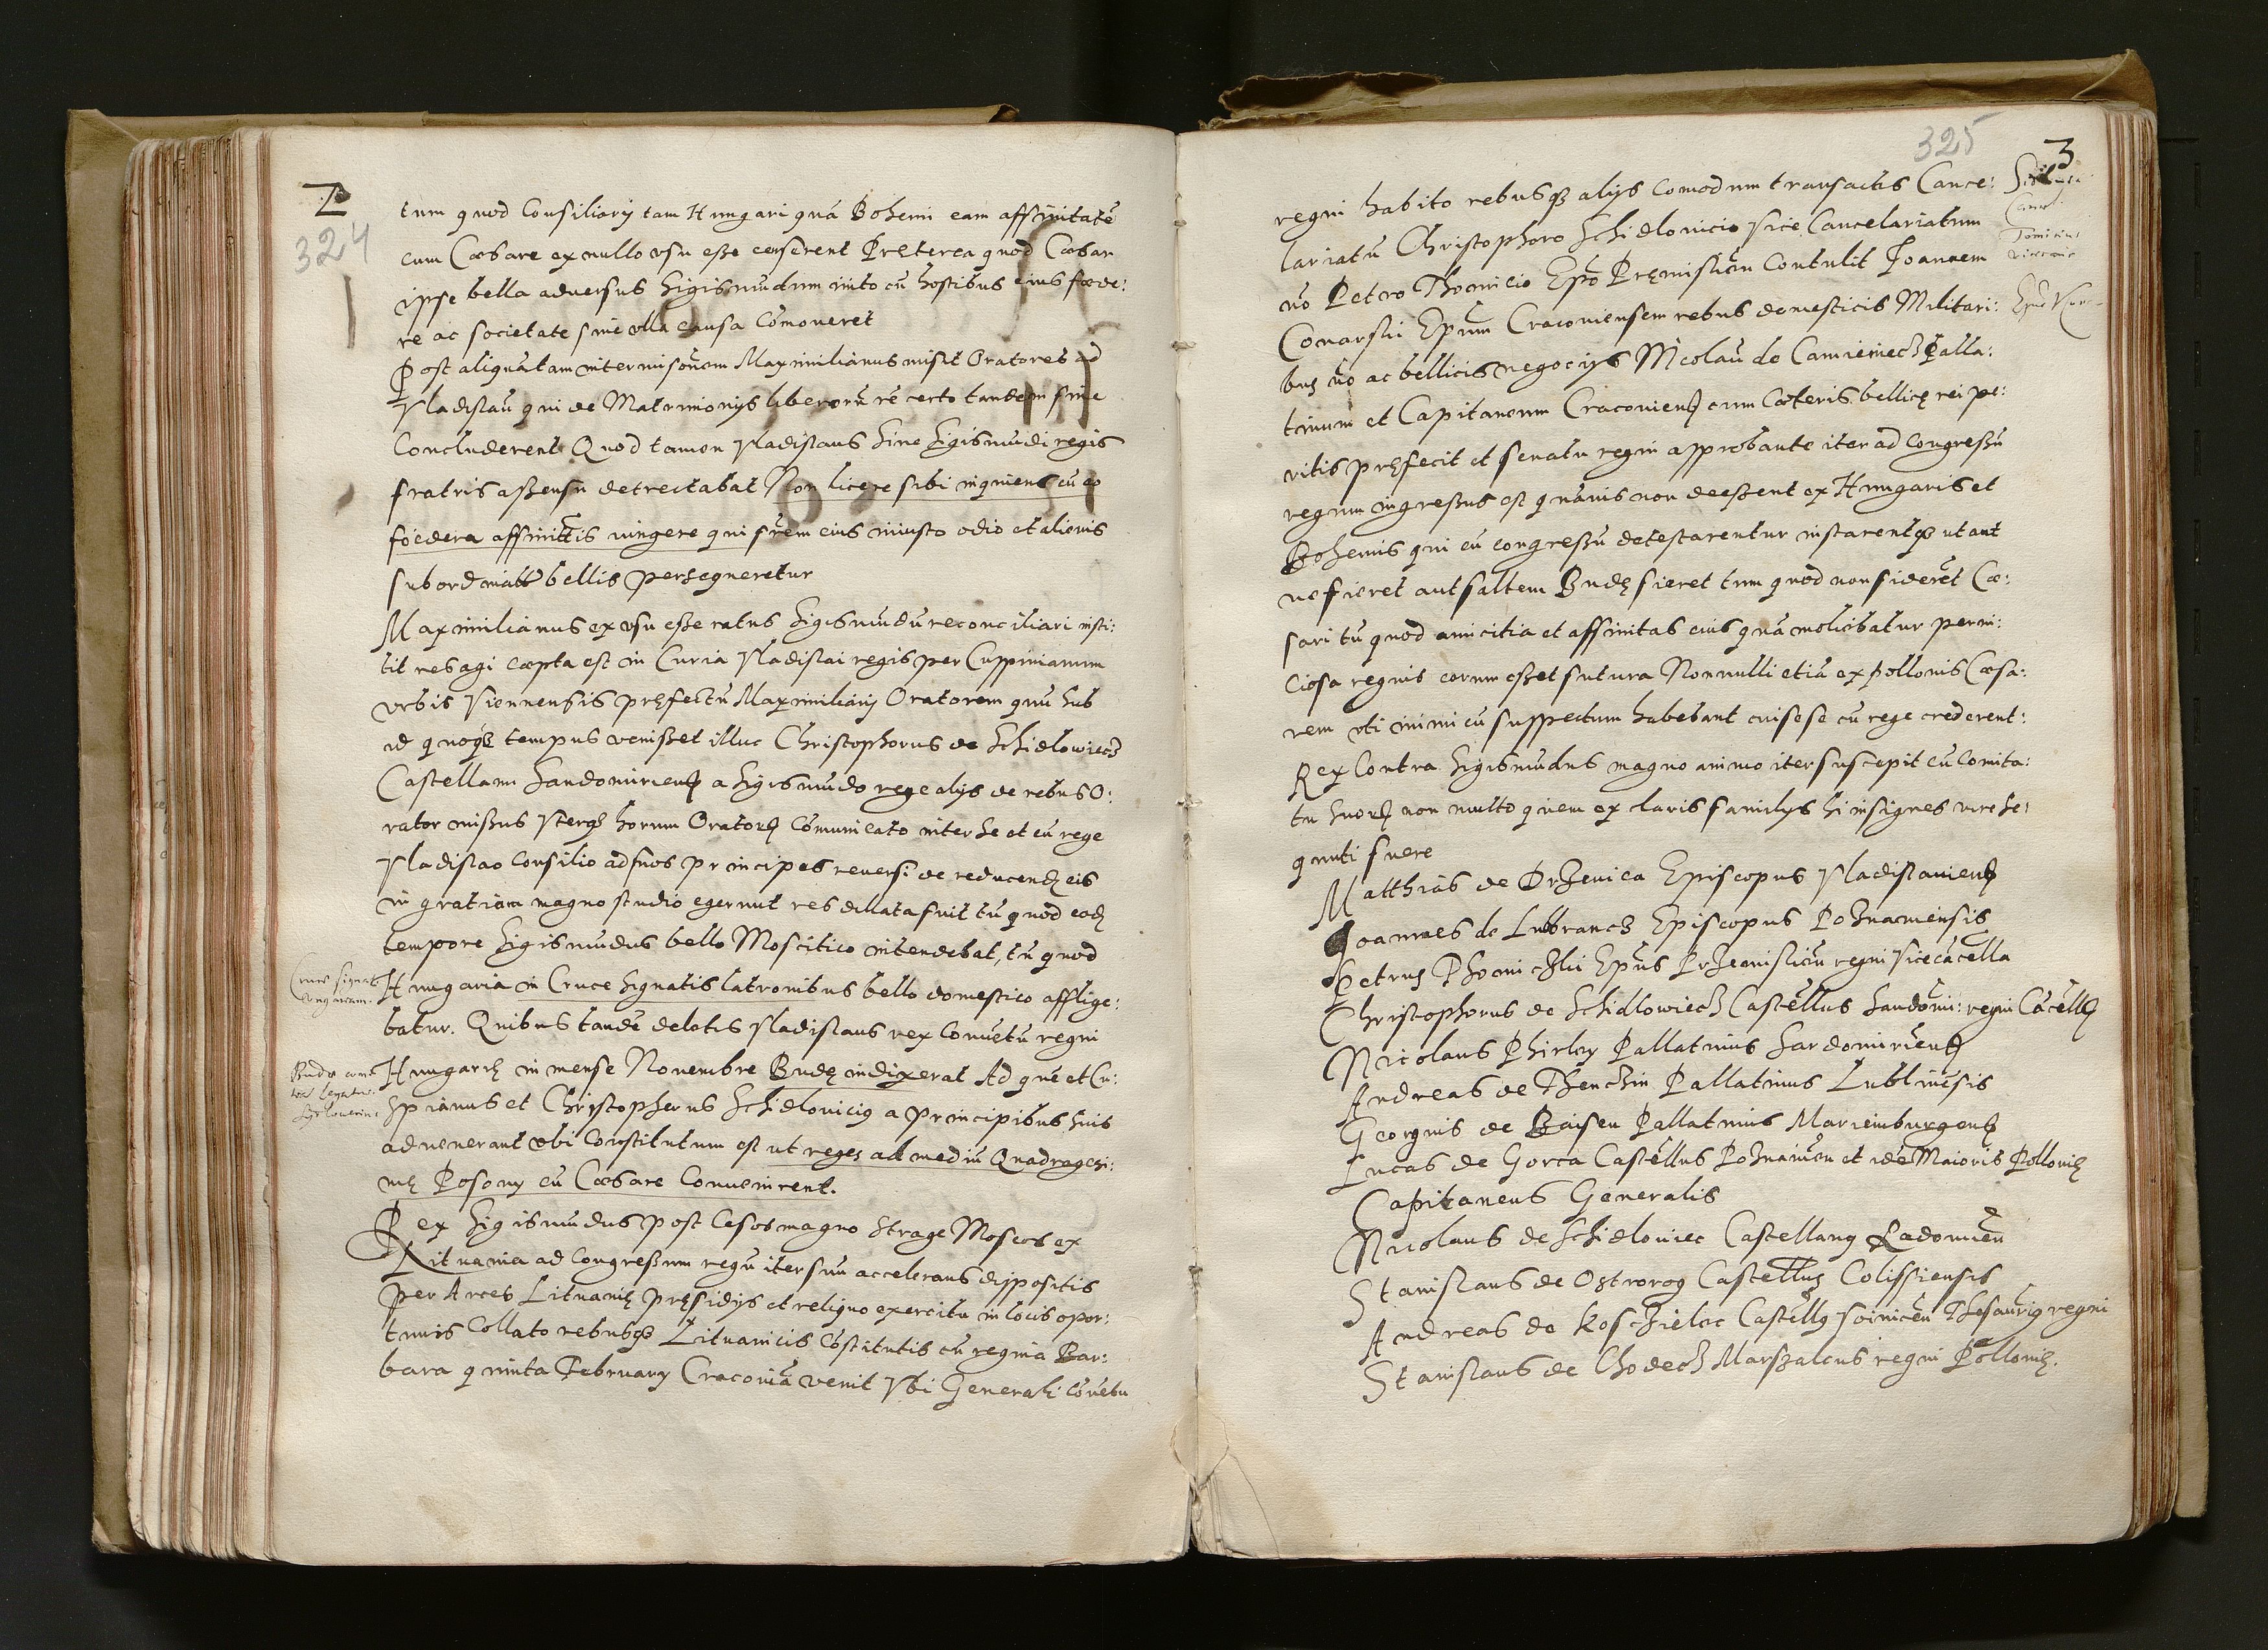 2
324
tum quod Consiliarij tam Hungari quā Bohemi eam affinitatē
cum Cæsare ex nullo vsu esse censerent Pręterea quod Cæsar
ipse bella aduersus Sigismūdum inito cū hostibus eius fœde:
re ac societate sine vlla causa Cōmoueret
Post aliquātam intermisōnem Maximilianus misit Oratores ad
Vladislaū qui de Matrimonijs liberorū rē certo tandem fine
Concluderent Quod tamen Vladislaus Sine Sigismūdi regis
fratris assensu detrectabat Non licere sibi inquiens cū eo
fœdera affinitātis iungere qui frēm eius iniusto odio et alienis
subordinatis bellis persequeretur
Maximilianus ex vsu esse ratus Sigismūdū reconciliari insti:
tit res agi cœpta est in Curia Vladislai regis per Cuspinianum
vrbis Viennensis pręfectū Maximiliani Oratorem quū sub
id quoqȝ tempus venisset illuc Christophorus de Schidlowiecz
Castellanus Sandomirienß a Sigismūdo rege alijs de rebus O:
rator missus Vterqȝ horum Oratorȝ Cōmunicato inter se et cū rege
Vladislao Consilio ad suos principes reuersi de reducendȝ eis
in gratiam magno studio egerunt res dilata fuit tū quod eodȝ
tempore Sigismūdus bello Moscitico intendebat, tū quod
Cruce signati
Vngarorum.
Hungaria in Cruce Signatis latronibus bello domestico afflige:
batur. Quibus tandē deletis Vladislaus rex Conuētū regni
Hungarię in mense Nouembre Budę indixerat Ad quē et Cu:
spianus et Christopherus Schidlouicius a principibus suis
aduenerant vbi Constitutum est ut reges ad mediū Quadragesi:
mę Posony cū Cæsare Conuenirent.
Rex Sigismūdus post Cesos magno strage Moscos ex
Lituania ad Congressum regū iter suū accelerans dispositis
per Arces Lituanię pręsidijs et reliquo exercitu in locis opor:
tunis Collato rebusqȝ Lituanicis Cōstitutis cū regina Bar:
bara quinta February Cracouiā venit Vbi Generali cōuētu
325
3
regni habito rebusqȝ alijs Comodum transactis Cance:
lariatū Christophoro Schidlouicio Vice Cancelariatum
vō Petro Thomicio Epō Pręmislien̄ Contulit Joannem
Conarski Epūm Cracouiensem rebus domesticis Militari:
bus vō ac bellicis negocijs Nicolaū de Camieniecȝ Palla:
tinum et Capitaneum Cracouienß cum Cæteris bellicę rei pe:
ritis pręfecit et senatu regni approbante iter ad Congressū
regum ingressus est quāuis non deessent ex Hungaris et
Bohemis qui eū congressū detestarentur instarentqȝ ut aut
ne fieret aut saltem Budę fieret tum quod non fiderēt Cæ:
sari tū quod amicitia et affinitas eius quā molibatur perni:
ciosa regnis eorum esset futura Nonnulli etiā ex Pollonis Cæsa:
rem vti inimicū suspectum habebant cui se se cū rege crederent:
Rex Contra Sigismūdus magno animo iter suscepit cū Comita:
tu suorȝ non multo quem ex claris familijs hi insignes uiri se:
quuti fuere
Matthias de Drzeuica Episcopus Vladislauienß
Joannes de Lubrancȝ Episcopus Poznaniensis
Petrus Thomiczki Epūs Przemislien̄ regni Vicecācella
Christophorus de Schidlowiecȝ Castēllus Sandomi: regni Cācellȝ
Nicolaus Phirley Pallatinus Sandomirienß
Andreas de Thenchin Pallatinus Lublinēsis
Georgius de Baisen Pallatinus Mariemburgenß
Lucas de Gorca Castēllus Poznanien̄ et idē Maioris Pollonię
Capitaneus Generalis
Nicolaus de Schidlouiec Castellanus Radomien̄
Stanislaus de Ostrorog Castellus Calissiensis
Andreas de Kosczielec Castellus Voinicen̄ Thesaurius regni
Stanislaus de Chodecȝ Marszalcus regni Pollonię.